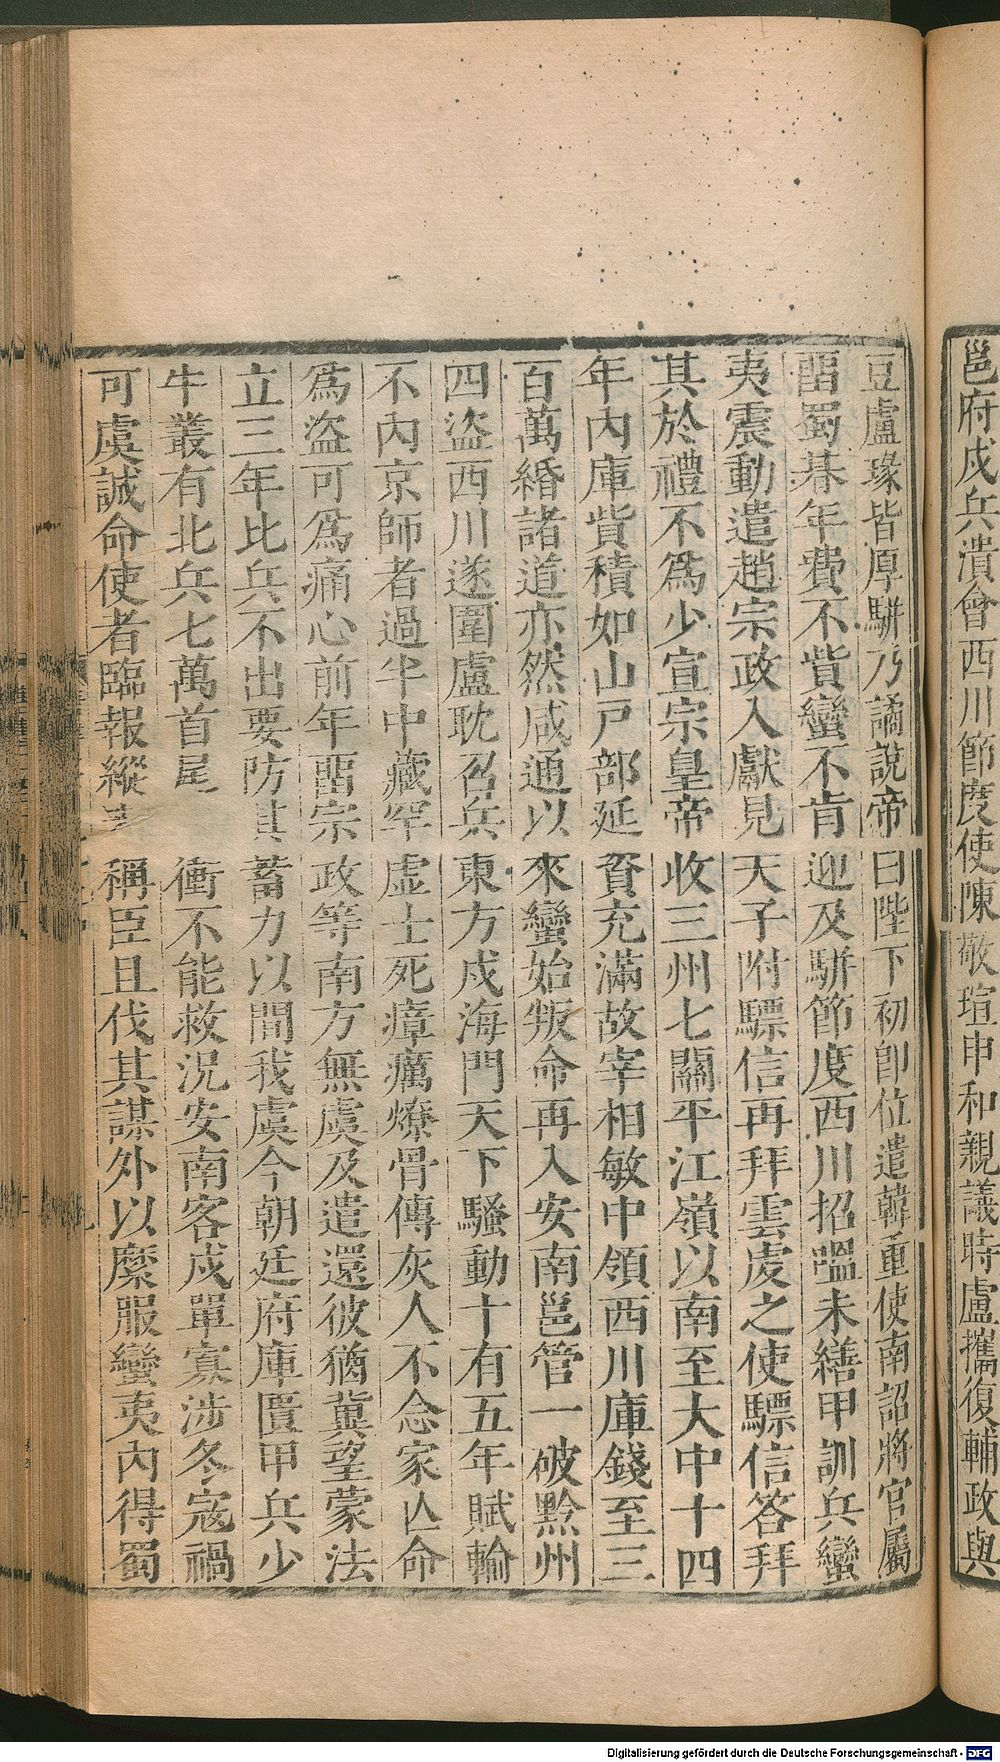 邕府戍兵潰會西川節度使陳敬瑄申和親議時盧攜復輔政與
豆盧瑑皆厚駢乃譎說帝曰陛下初卽位遣韓重使南詔將官屬
畱蜀朞年費不貲蠻不肯迎及駢節度西川招𥁕未繕甲訓兵蠻
夷震動遣趙宗政入獻見天子附驃信再拜雲虔之使驃信答拜
其於禮不爲少宣宗皇帝收三州七關平江嶺以南至大中十四
年內庫貲積如山戸部延資充滿故宰相敏中領西川庫錢至三
百萬緡諸道亦然咸通以來蠻始叛命再入安南邕管一破黔州
四盜西川遂圍盧耽召兵東方戍海門天下騷動十有五年賦輸
不內京師者過半中藏罕虛士死瘴癘燎骨傳灰人不念家亾命
爲盜可爲痛心前年畱宗政等南方無虞及遣還彼猶冀望蒙法
立三年比兵不出要防其蓄力以間我虞今朝廷府庫匱甲兵少
牛叢有北兵七萬首尾衝不能救況安南客戍單寡涉冬寇禍
可虞誠命使者臨報縱未稱臣且伐其謀外以縻服蠻夷內得蜀
Digitalisierung gefördert durch die Deutsche Forschungsgemeinschaft - DFG